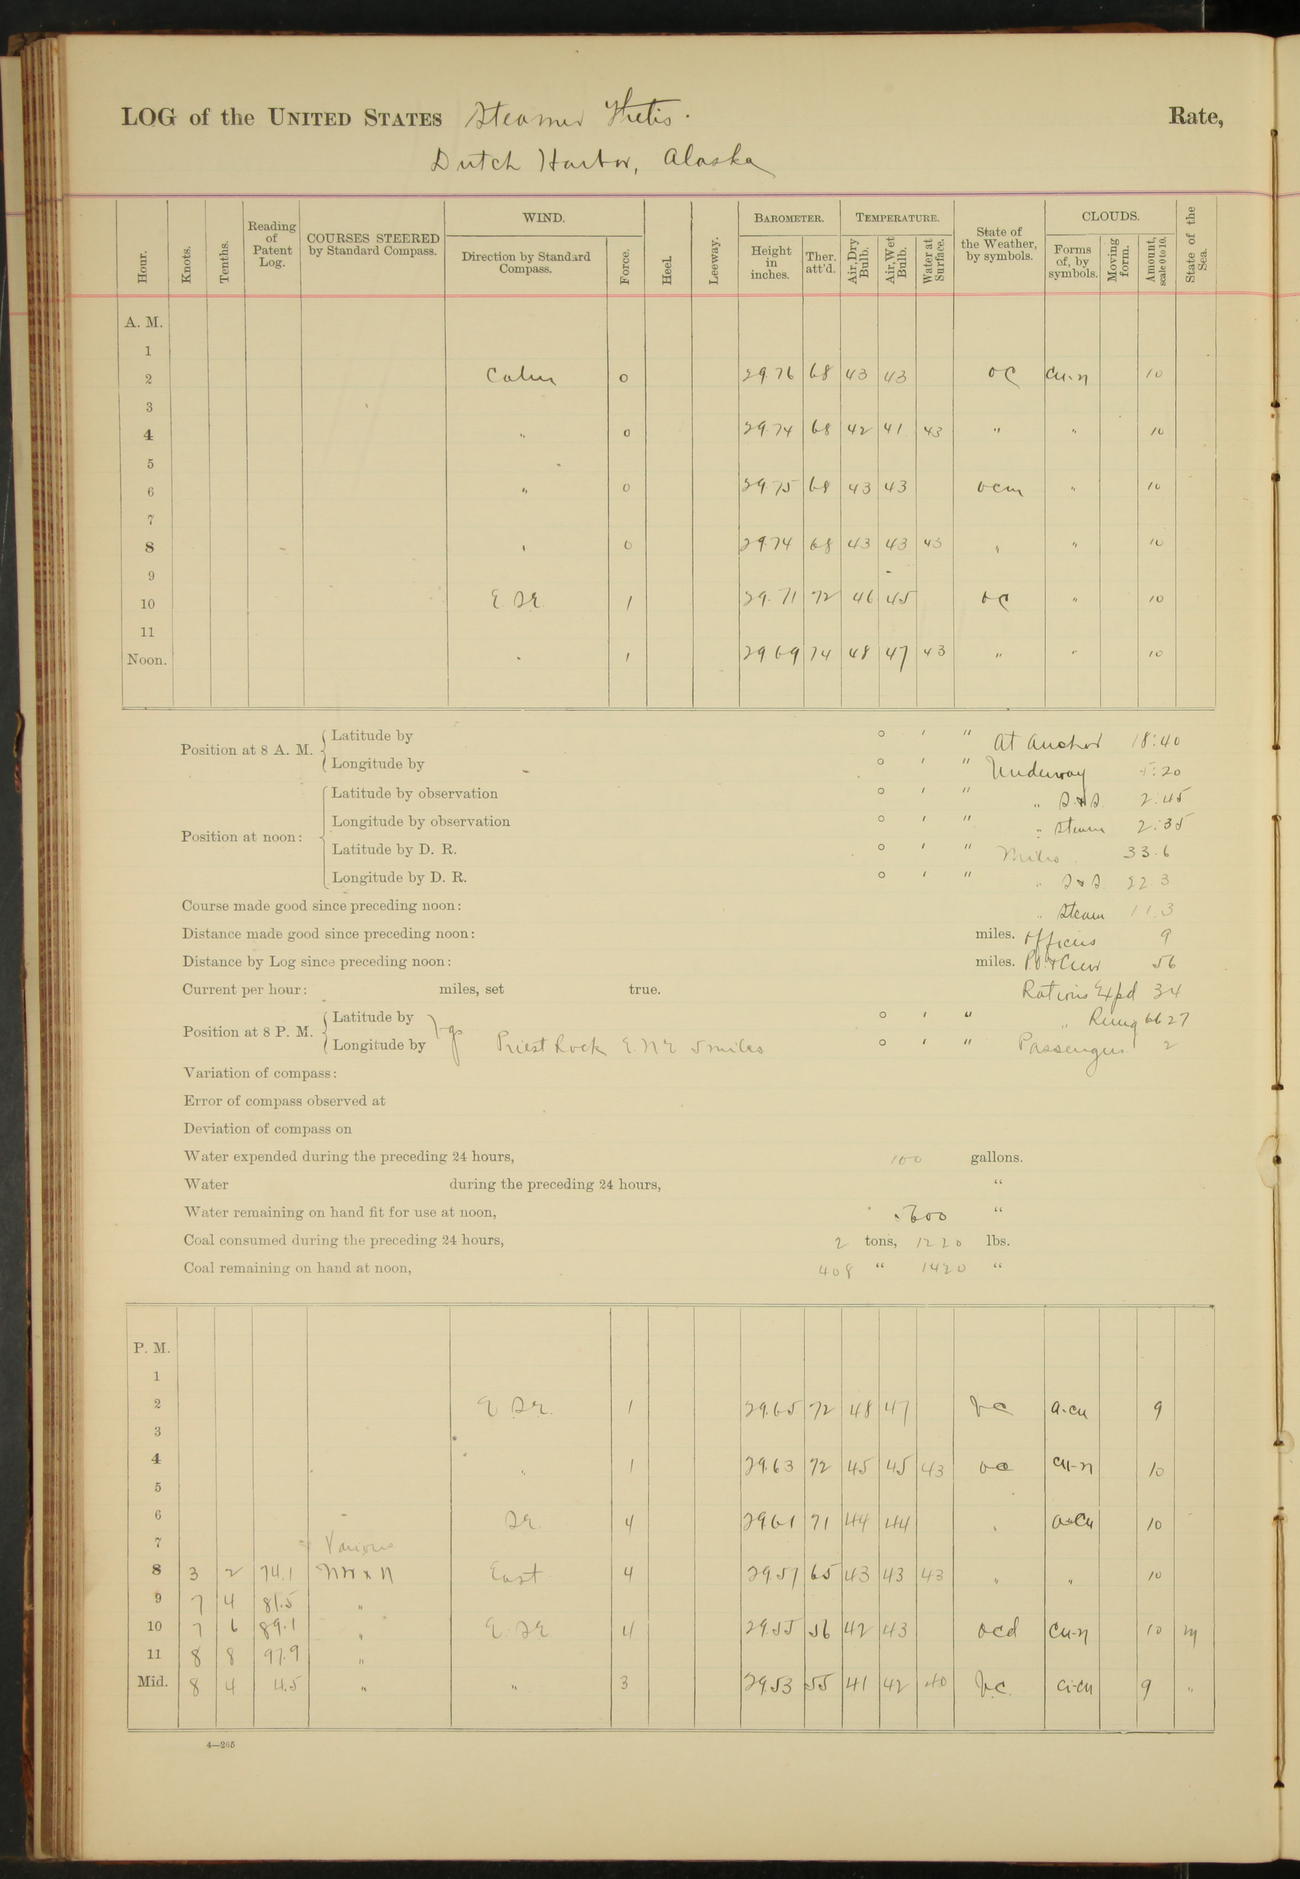 LOG of the UNITED STATES Steamer Thetis. Rate,
Dutch Harbor, Alaska
Hour. Knots. Tenths. Reading of Patent Log. COURSES STEERED by Standard Compass. WIND. Direction by Standard Compass. Force. Heel. Leeway. BAROMETER. Height in inches. Ther. att'd. TEMPERATURE. Air, Dry Bulb. Air, Wet Bulb. Water at Surface. State of the Weather, by symbols. CLOUDS. Forms of, by symbols. Moving form. Amount, scale 0 to 10. State of the Sea.
A. M.
1
2 Calm 0 29.76 68 43 43 oc cu-n 10
3
4 " 0 29.74 68 42 41 43 " " 10
5
6 " 0 29.75 68 43 43 ocm " 10
7
8 " 0 29.74 68 43 43 43 " " 10
9
10 E SE 1 29.71 72 46 45 oc " 10
11
Noon. " 1 29.69 74 48 47 43 " " 10
Position at 8 A. M. Latitude by ° ′ ″ At Anchor 18:40
Longitude by ° ′ ″ Underway 5:20
Position at noon: Latitude by observation ° ′ ″ " S & S. 2:45
Longitude by observation ° ′ ″ " Steam 2:35
Latitude by D. R. ° ′ ″ Miles 33.6
Longitude by D. R. ° ′ ″ " S & S. 22.3
Course made good since preceding noon: " Steam 11.3
Distance made good since preceding noon: miles. Officers 9
Distance by Log since preceding noon: miles. P.O. & Crew 56
Current per hour: miles, set true. Rations Expd 34
Position at 8 P. M. Latitude by ° ′ ″ " Remg 6627
Longitude by Priest Rock E.N.E 5 miles ° ′ ″ Passengers 2
Variation of compass:
Error of compass observed at
Deviation of compass on
Water expended during the preceding 24 hours, 100 gallons.
Water during the preceding 24 hours, "
Water remaining on hand fit for use at noon, 600 "
Coal consumed during the preceding 24 hours, 2 tons, 1220 lbs.
Coal remaining on hand at noon, 408 " 1420 "
P. M.
1
2 E SE. 1 29.65 72 48 47 bc a-cu 9
3
4 " 1 29.63 72 45 45 43 oc cu-n 10
5
6 SE. 4 29.61 71 44 44 " a-cu 10
7 Various
8 3 2 74.1 NW x N East 4 29.57 65 43 43 43 " " 10
9 7 4 81.5 "
10 7 6 89.1 " E. SE 4 29.55 56 42 43 ocd cu-n 10 m
11 8 8 97.9 "
Mid. 8 4 4.5 " " 3 29.53 55 41 42 40 b.c. ci-cu 9 "
4—265